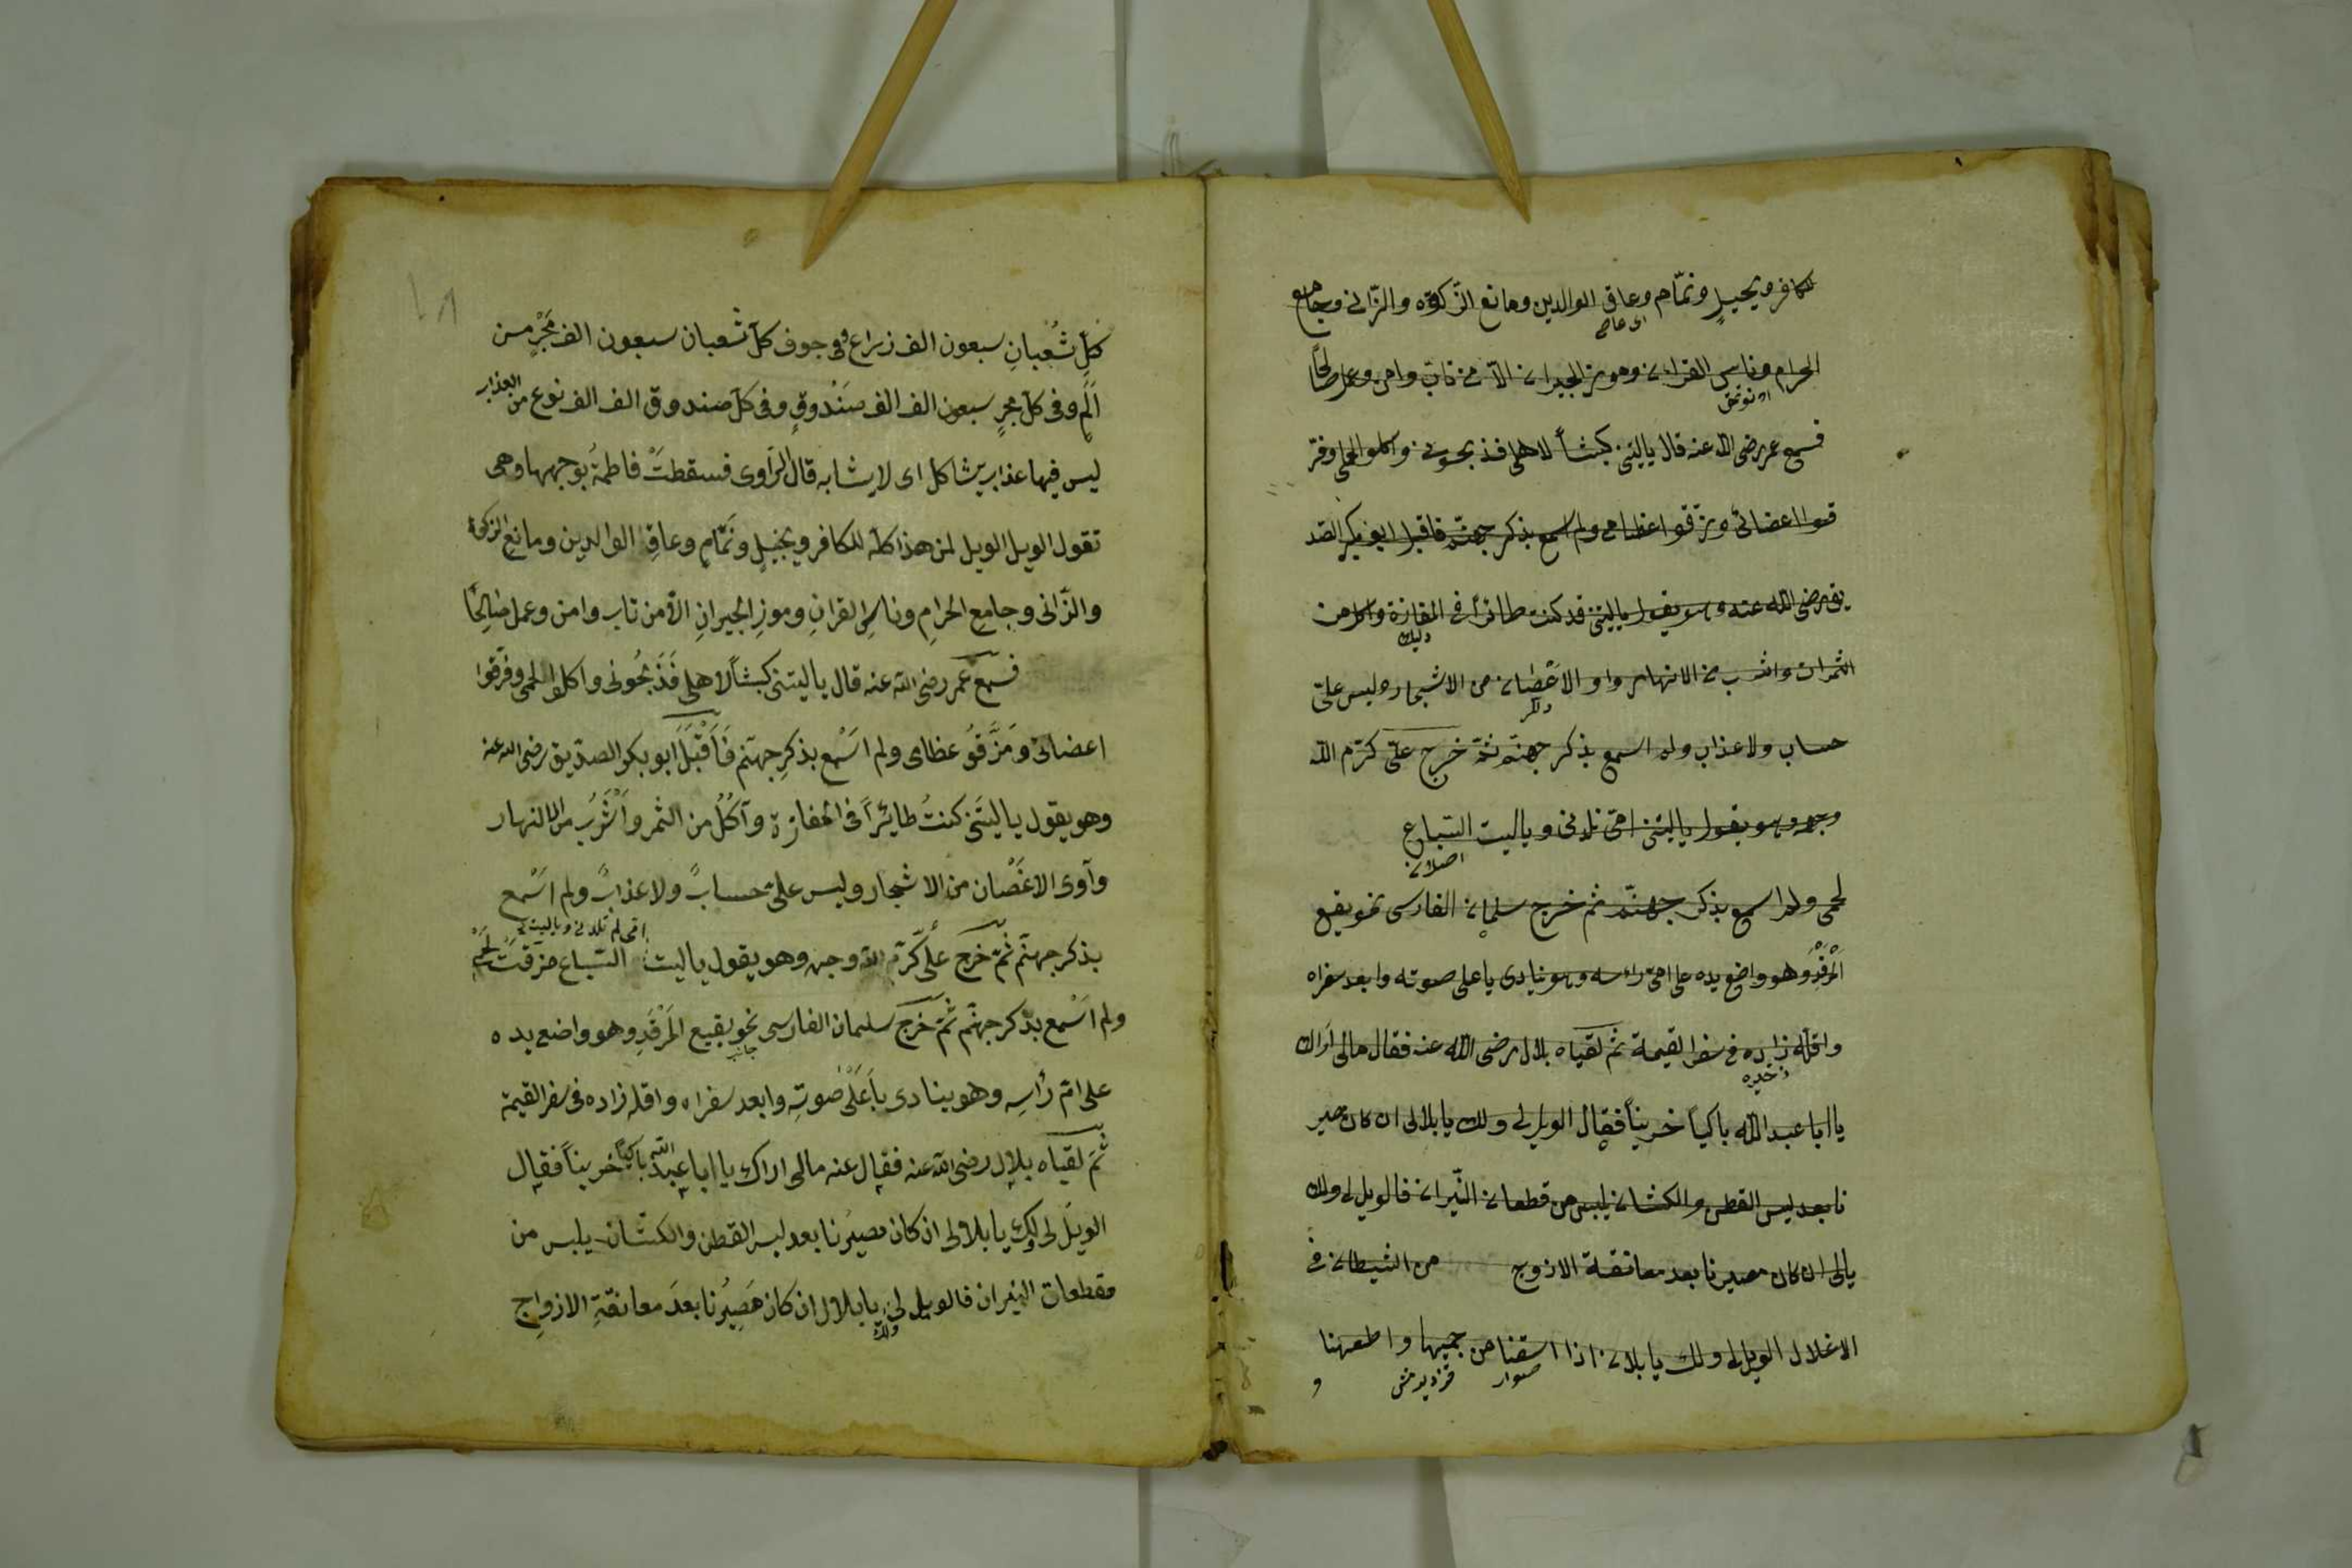 للكافر وبخيل ونمّام وعاق الوالدين ومانع الزّكوة والزّانى وجامع
اى عاصى
الحرام وناسى القران وموز الجيران الّا من تاب وامن وعمل صالحًا
فسمع عمر رضى الله عنه قال ياليتنى كبشاً لاهلى فذبحونى واكلوا لحمى وفرّ
قوا اعضائى ومزّقوا عظامى ولم اسمع بذكر جهنّم فاقبل ابوبكر الصد
يق رضى الله عنه وهو يقول ياليتنى قد كنت طائراً فى المفازة واكل من
الثمرات واشرب من الانهار واو الاغصان من الاشجار وليس علىّ
حساب ولا عذاب ولم اسمع بذكر جهنّم ثمّ خرج علىّ كرّم الله
وجهه وهو يقول ياليتنى امّى تلدنى وياليت السّباع
لحمى ولم اسمع بذكر جهنّم ثم خرج سلمان الفارسى نحو بقيع
المرقد وهو واضع يده على امّ رأسه وهو ينادى باعلى صوته وابعد سفراه
واقلّه زاده فى سفر القيمة ثم لقياه بلال رضى الله عنه فقال مالى اراك
ذخيره
يا ابا عبد الله باكياً خريناً فقال الويل لى ولك يا بلالى ان كان مصير
نا بعد لبس القطن والكتان يلبس من قطعان النّيران فالويل لى ولك
يالى ان كان مصيرنا بعد معانقة الازوج من الشيطان فى
الاغلال الويل لى ولك يا بلال اذا اسقنا من جميها واطعهنا
و
كلّ ثُعْبانِ سبعون الف زراع وفى جوف كلّ ثعبان سبعون الف مَجْرٍ من
اَلَمٍ وفى كلّ مجرٍ سبعون الف الف صَنْدوقٍ وفى كلّ صندوق الف الف نوع من العذاب
ليس فيها عذاب يشاكل اى لا يشابه قال الرّاوى فسقطتْ فاطمةُ بوجهها وهى
تقول الويل الويل لمن هذا كلّه للكافر وبخيلٍ ونَمّامٍ وعاقِ الوالدين ومانع الزكوة
والزّانى وجامع الحرامِ وناسى القرانِ وموزِ الجيرانِ الّا من تاب وامن وعمل صَالِحًا
فسمع عمر رضى الله عنه قال ياليتنى كبشاً لاهلى فَذَبحُونى واكلوا لحمى وفَرّقوا
اعضائى ومَزَّقوُ عظامى ولم اَسْمع بذكرِ جهنّم فَاَقْبَلَ ابو بكر الصدّيق رضى الله عنه
وهو يقول ياليتَنى كنتُ طائِراً فى المفازة وآكُلُ من الثمر واَشْرَبُ من الانهار
وآوى الاغْصان من الاشجار وليس علىّ حسابٌ ولا عذابٌ ولم اَسْمع
امّى لم تلدنى وياليت
بذكر جهنّم ثمّ خرج علىّ كرّم الله وجهه وهو يقول ياليت السّباع مزّقتْ لَحْمِى
ولم اَسْمع بذكر جهنّم ثمّ خرج سلمان الفارسى نحو بقيع المَرْقَدِ وهو واضع يده
جانب
على امّ رأسِه وهو ينادى باَعْلى صَوتِه وابعد سفراه واقله زاده فى سفر القيمة
ثمّ لقياه بلال رضى الله عنه فقال عنه مالى اراك يا ابا عبد الله باكياً خريناً فقال
الويل لى ولك يا بلالى ان كان مصيرُنا بعد لبس القطن والكتّان يلبس من
مقطعات النيران فالويل لى ولك يا بلال ان كان مَصِيرُنا بعدَ معانقةِ الازواج